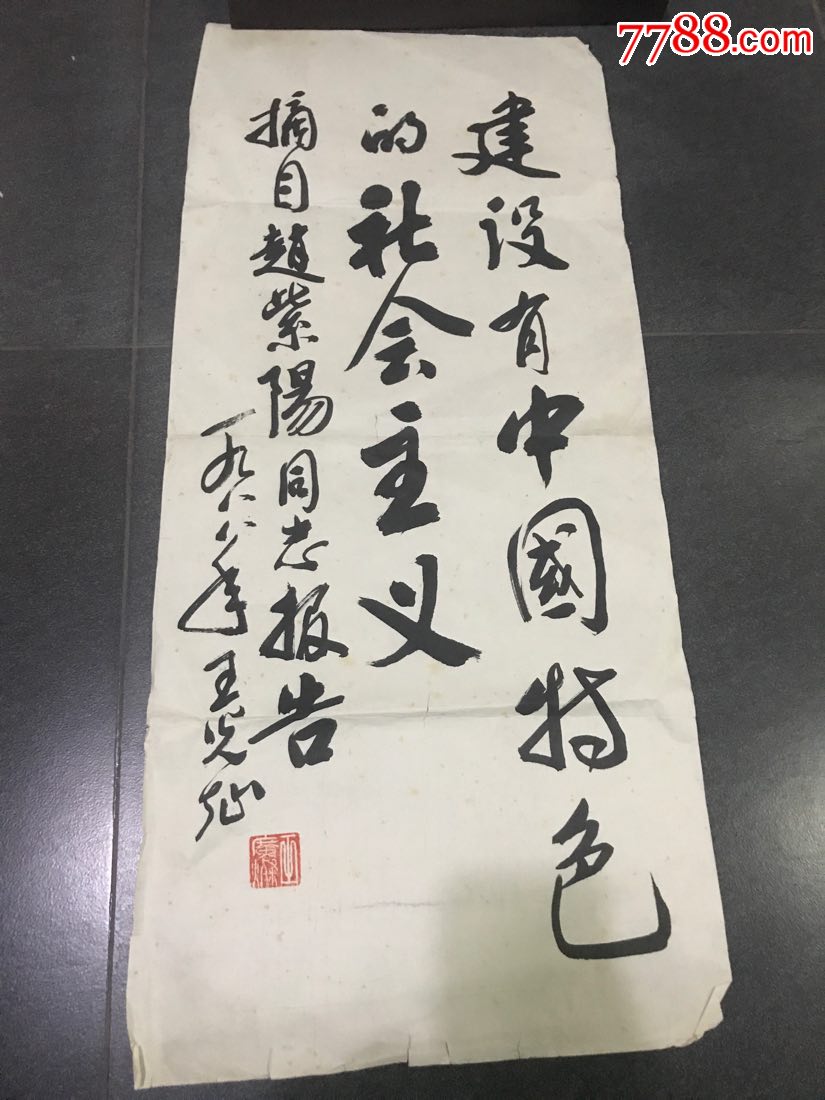 7788.com
建设有中國特色
的社会主义
摘自趙紫陽同志报告
一九八八年 王光灿